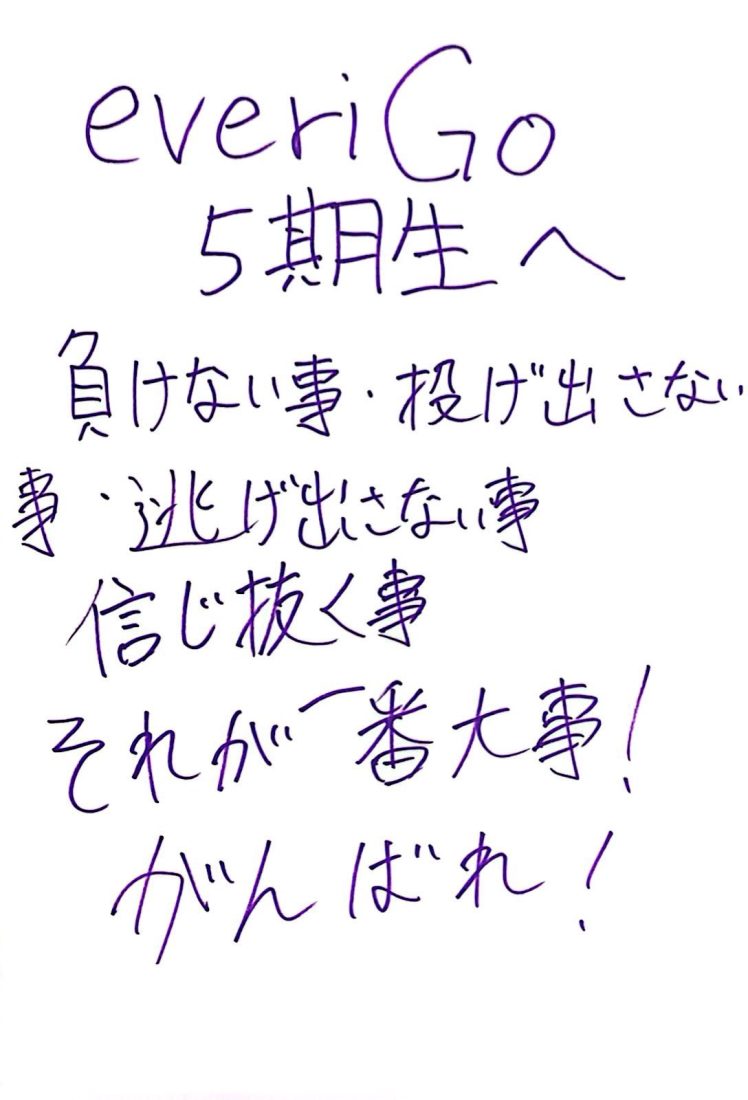 everiGo
5期生へ
負けない事・投げ出さない
事・逃げ出さない事
信じ抜く事
それが一番大事!
がんばれ!